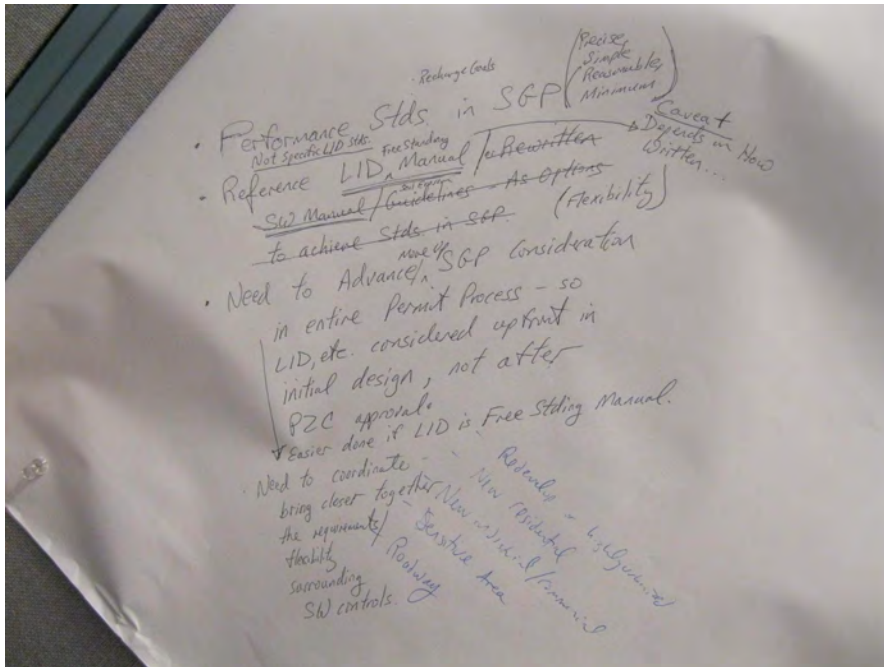 · Recharge Goals
· Performance Stds in SGP (Precise,
Simple
Reasonable,
Minimum)
Not Specific LID Stds. Free Standing
Caveat
Depends on How
Written...
· Reference LID ^ Manual / Rewritten
SW Manual / Guidelines - As Options
to achieve Stds in SGP. (Flexibility)
move up
· Need to Advance ^ SGP Consideration
in entire Permit Process - so
LID, etc. considered upfront in
initial design, not after
PZC approval.
Easier done if LID is Free Stding Manual.
· Need to coordinate -
bring closer together
the requirements/
flexibility
surrounding
SW controls.
- Redevelop - highly urbanized
- New residential
- New industrial/commercial
- Sensitive Area
- Roadway